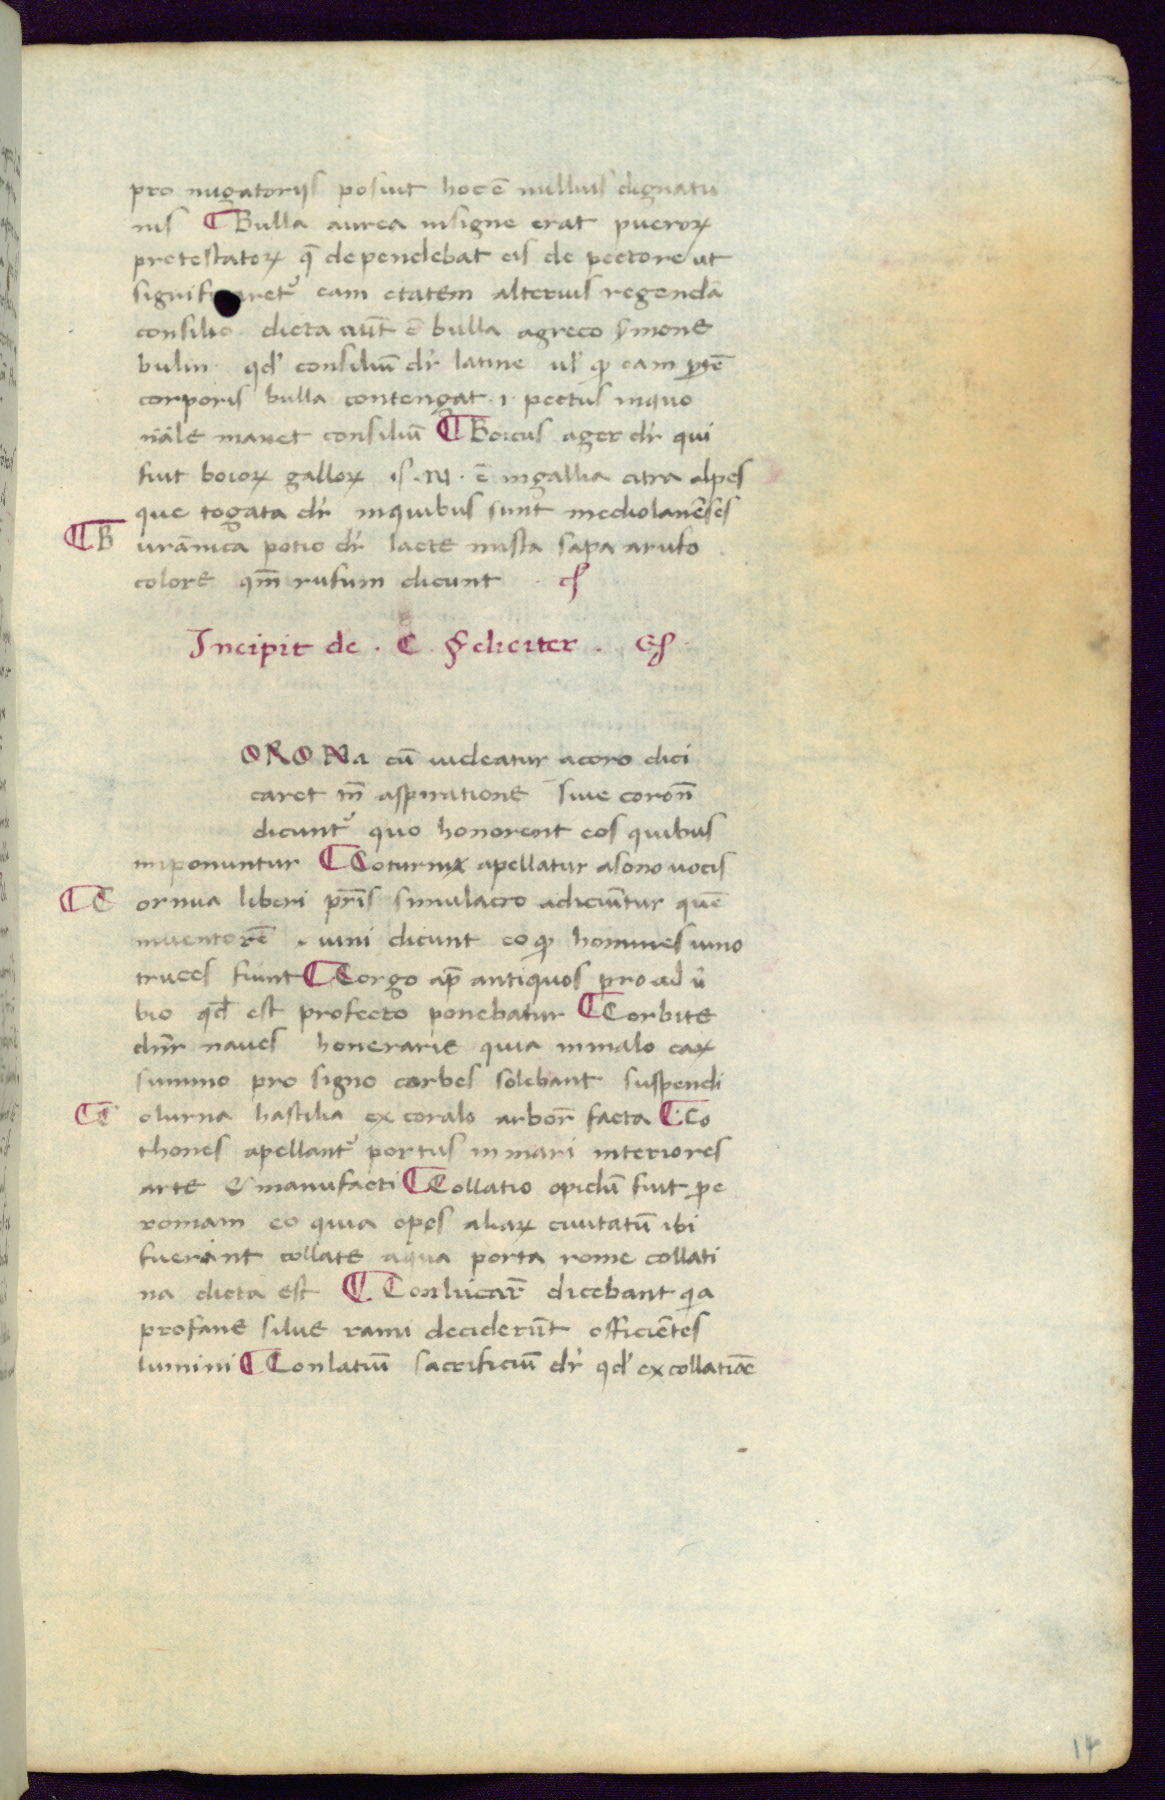 pro nugatorijs posuit hoc ē nullius dignatio
nis ⸿ Bulla aurea insigne erat pueroꝝ
pretestatoꝝ q̄ dependebat eis de pectore ut
signifi aret᷑ eam etatem alterius regendā
consilio. dicta aūt ē bulla agreco s̄mone
bulin. qd̓ consiliū dr̄ latine ul̓ ꝙ eam ꝑtē
corporis bulla contengat .i. pectus inquo
nāle manet consiliū ⸿ Boicus ager dr̄ qui
fuit boioꝝ galloꝝ is .N. ē ingallia citra alpes
que togata dr̄ inquibus sunt mediolanēses
⸿ B urānica potio dr̄ lacte mista sapa arufo
colore qm̄ rufum dicunt
Incipit de . C . Feliciter .
ORONa cū uideatur acoro dici
caret tn̄ aspiratione siue coron̄
dicunt᷑ quo honorent eos quibus
imponuntur ⸿ Coturnix apellatur asono uocis
⸿ C ornua liberi pr̄is simulacro adiciuntur quē
inuentorē . uini dicunt eo ꝙ homines uino
truces fiunt ⸿ Corgo ap̄ antiquos pro ad ū
bio qd̄ est profecto ponebatur ⸿ Corbite
dn̄r naues honerarie quia inmalo eaꝝ
summo pro signo corbes solebant suspendi
⸿ C olurna hastilia ex coralo arbor̄ facta ⸿ Co
thones apellant᷑ portus in mari interiores
arte & manufacti ⸿ Collatio opidū fuit ꝓpe
romam eo quia opes aliaꝝ ciuitatū ibi
fuerant collate aqua porta rome collati
na dicta est ⸿ Conlucar̄ dicebant qia
profane silue rami deciderūt officiētes
lumini ⸿ Conlatiuū sacrificiū dr̄ qd̓ ex collatiōe
14